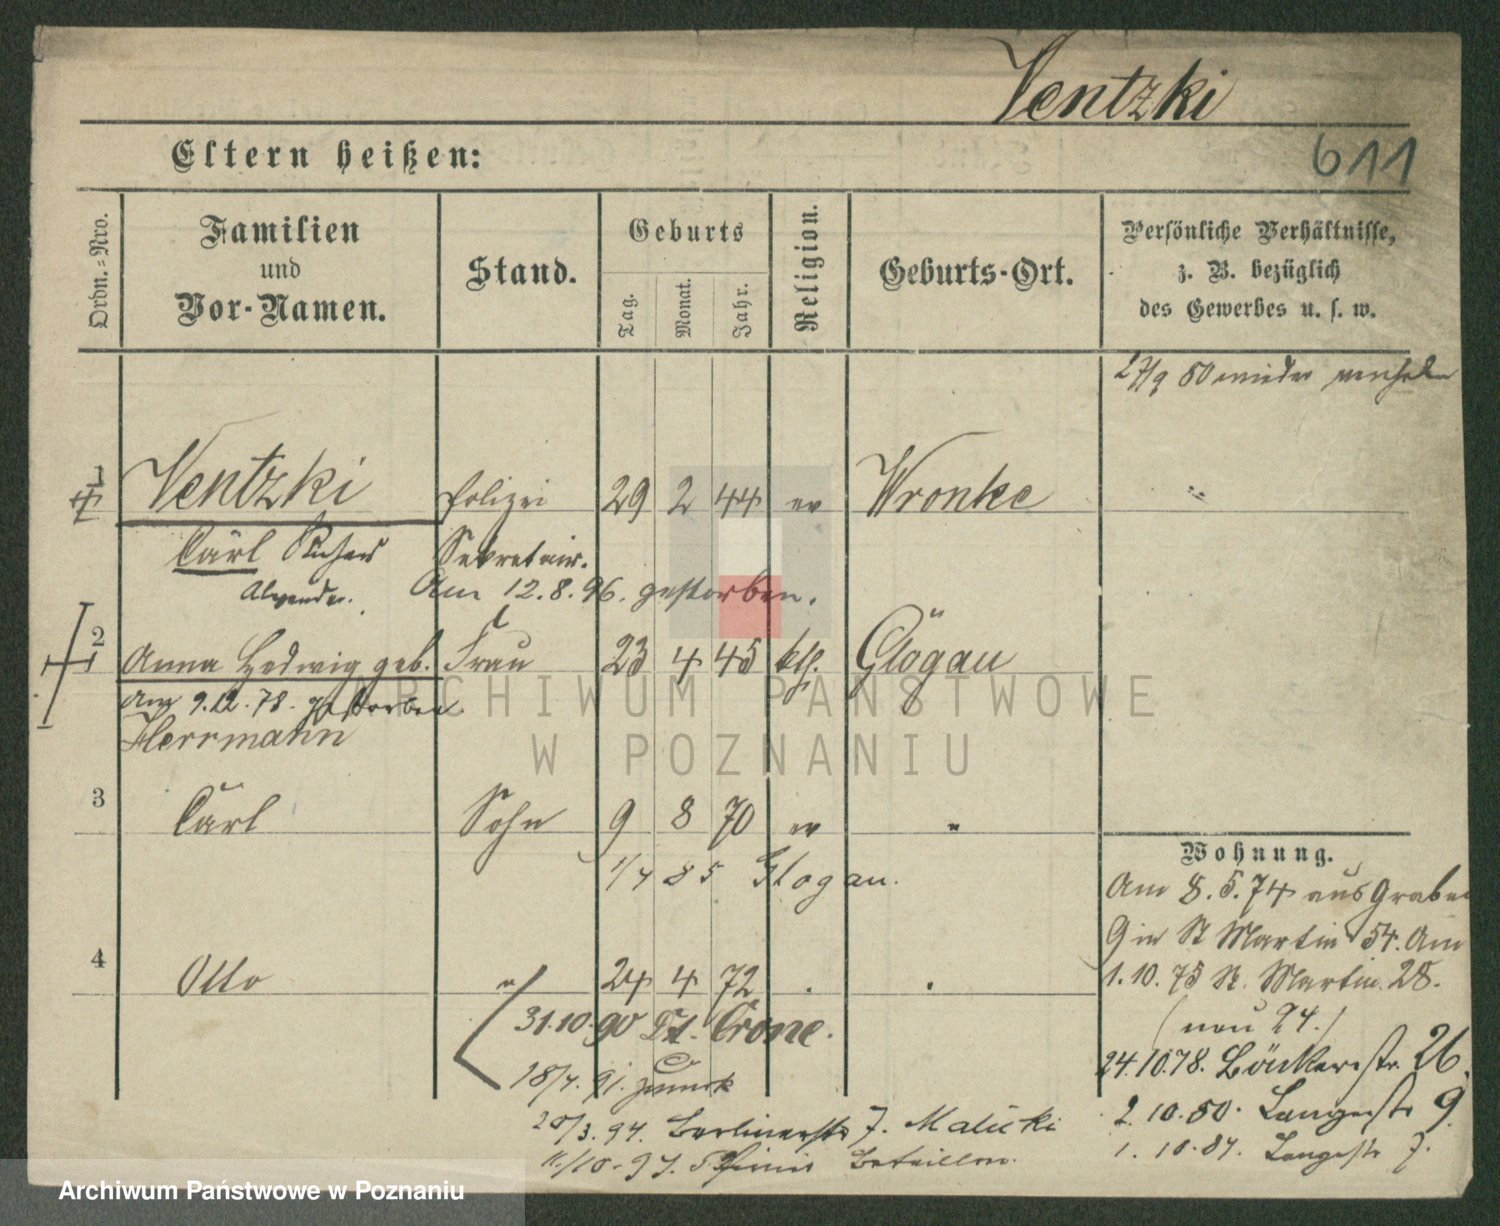 Ventzki
611
Eltern heißen:
Ordn.=Nro.
Familien
und
Vor-Namen.
Stand.
Geburts
Tag.
Monat.
Jahr.
Religion.
Geburts-Ort.
Persönliche Verhältnisse,
z. B. bezüglich
des Gewerbes u. s. w.
27/9 80 wieder
1 Ventzki Polizei 29 2 44 ev Wronke
Carl Sekretair.
Am 12.8.96. gestorben.
2 Anna Hedwig geb. Frau 23 4 45 kth. Glogau
Am 9.12.78. gestorben.
Herrmann
3 Carl Sohn 9 8 70 ev "
1/4 85 Glogau.
4 Otto " 24 4 72 . .
31.10.90 Dt. Crone.
18/4. 91. zurück
20/3.94. Berlinerstr 7. Malicki
11/10-97. 5 Pionir Bataillon.
Wohnung.
Am 8.5.74 aus Graben
9 in St Martin 54. Am
1.10.75 St. Martin 28.
(neu 24.)
24.10.78. Bäckerstr. 26.
2.10.80. Langestr 9.
1.10.87. Langestr 7.
ARCHIWUM PAŃSTWOWE
W POZNANIU
Archiwum Państwowe w Poznaniu